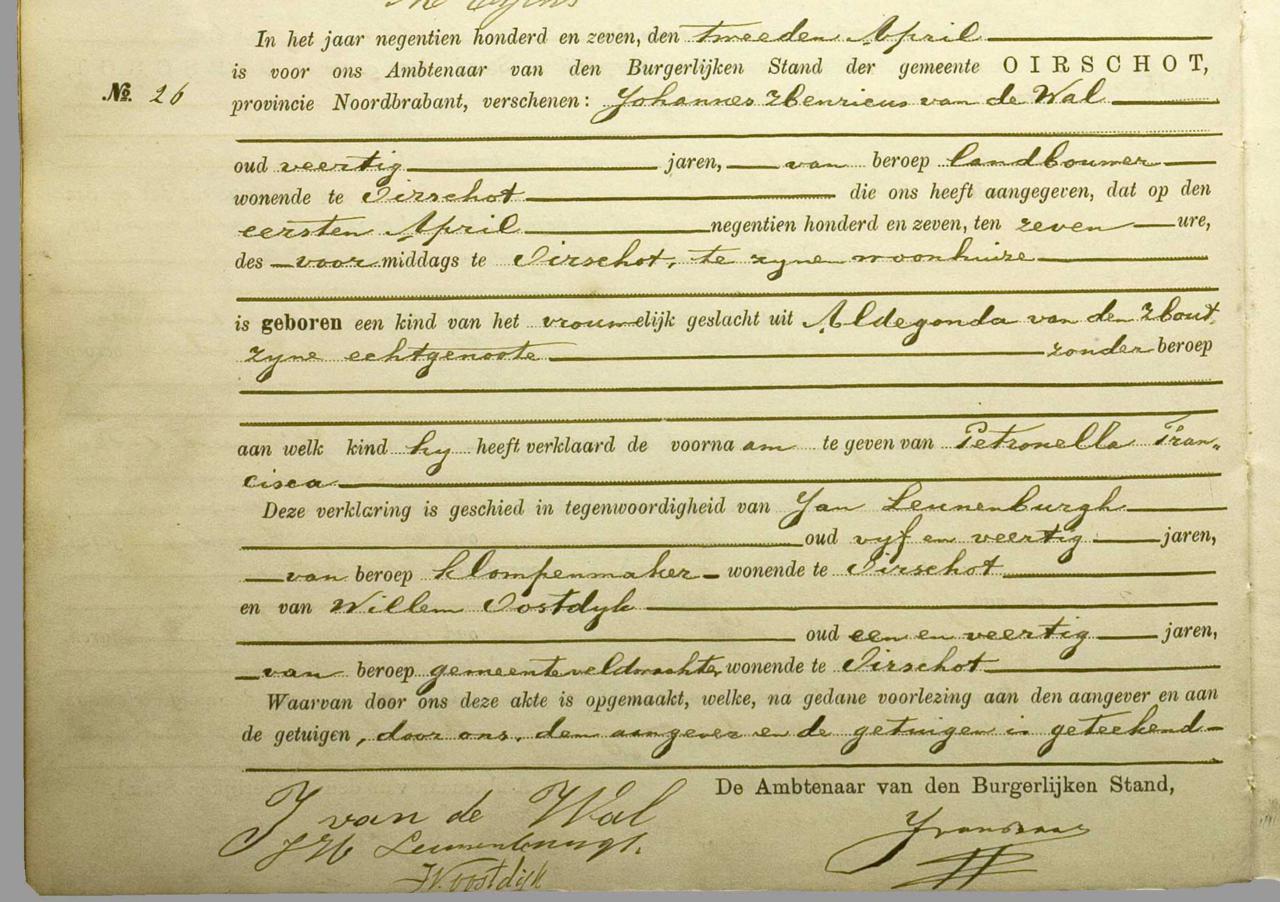 In het jaar negentien honderd en zeven, den tweeden April
is voor ons Ambtenaar van den Burgerlijken Stand der gemeente OIRSCHOT,
No. 26
provincie Noordbrabant, verschenen: Johannes Henricus van de Wal
oud veertig jaren, van beroep landbouwer
wonende te Oirschot die ons heeft aangegeven, dat op den
eersten April negentien honderd en zeven, ten zeven ure,
des voor middags te Oirschot, te zyne woonhuize
is geboren een kind van het vrouwelijk geslacht uit Aldegonda van den Hout,
zyne echtgenoote zonder beroep
aan welk kind hy heeft verklaard de voornaam te geven van Petronella Fran„
cisca
Deze verklaring is geschied in tegenwoordigheid van Jan Leunenburgh
oud vyf en veertig jaren,
van beroep klompenmaker wonende te Oirschot
en van Willem Oostdyk
oud een en veertig jaren,
van beroep gemeenteveldwachter wonende te Oirschot
Waarvan door ons deze akte is opgemaakt, welke, na gedane voorlezing aan den aangever en aan
de getuigen, door ons, den aangever en de getuigen is geteekend
De Ambtenaar van den Burgerlijken Stand,
J van de Wal
Leunenburgh.
W. Oostdijk